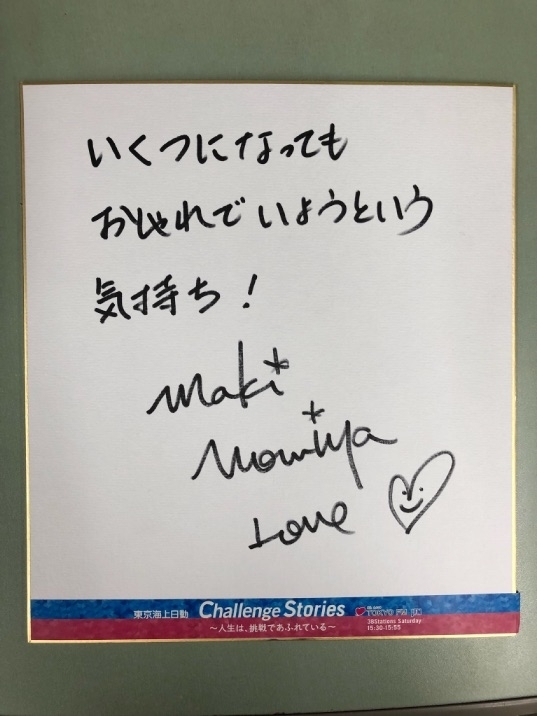 いくつになっても
おしゃれでいようという
気持ち!
Maki
Nomiya
Love
東京海上日動 Challenge Stories
〜人生は、挑戦であふれている〜
TOKYO FM
38Stations Saturday
15:30-15:55